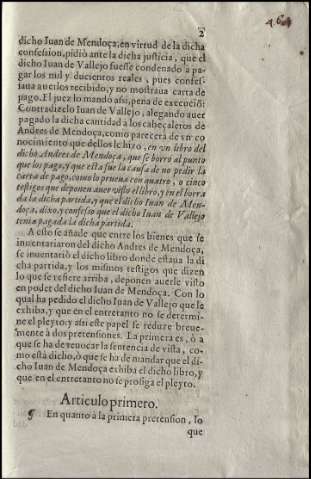 2
dicho Iuan de Mendoça, en virtud de la dicha
confession, pidiò ante la dicha justicia, que el
dicho Iuan de Vallejo fuesse condenado a pa-
gar los mil y ducientos reales, pues confes-
saua auerlos recibido, y no mostraua carta de
pago. El juez lo mandò assi, pena de execuciõ:
Contradizelo Iuan de Vallejo, alegando auer
pagado la dicha cantidad a los cabeçaleros de
Andres de Mendoça, como parecerà de vn co
nocimiento que dellos se hizo, en vn libro del
dicho Andres de Mendoça, que se borrò al punto
que los pagò, y que esta fue la causa de no pedir la
carta de pago, como lo prueua con quatro, o cinco
testigos que deponen auer visto el libro, y en el borra
da la dicha partida, y que el dicho Iuan de Men-
doça, dixo, y confesso que el dicho Iuan de Vallejo
tenia pagada la dicha partida.
A esto se añade que entre los bienes que se
inuentariaron del dicho Andres de Mendoça,
se inuentariò el dicho libro donde estaua la di
cha partida, y los mismos testigos que dizen
lo que se refiere arriba, deponen auerle visto
en poder del dicho Iuan de Mendoça. Con lo
qual ha pedido el dicho Iuan de Vallejo que se
exhiba, y que en el entretanto no se determi-
ne el pleyto: y assi este papel se reduze breue-
mente à dos pretensiones. La primera es, ò a
que se ha de reuocar la sentencia de vista, co-
mo està dicho, ò que se ha de mandar que el di-
cho Iuan de Mendoça exhiba el dicho libro, y
que en el entretanto no se prosiga el pleyto.
Articulo primero.
¶ En quanto à la primera pretension, lo
que